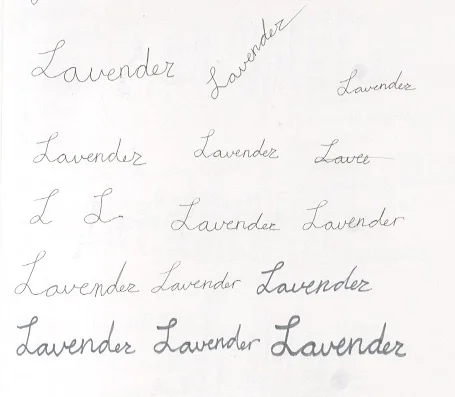 Lavender Lavender Lavender
Lavender Lavender Lavee
L L Lavender Lavender
Lavender Lavender Lavender
Lavender Lavender Lavender